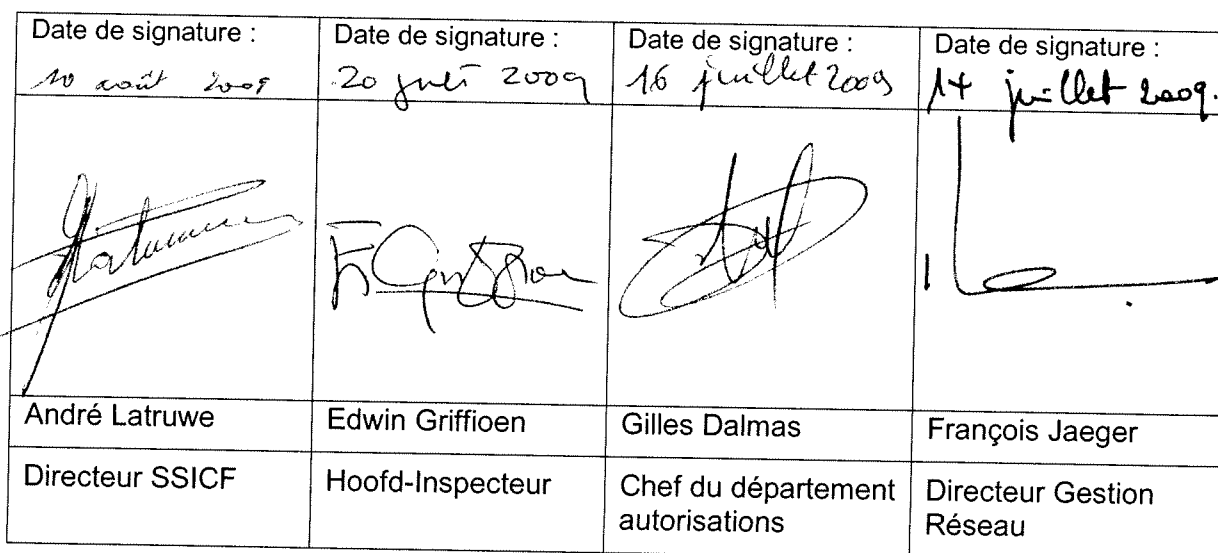 Date de signature :
10 août 2009
Date de signature :
20 juli 2009
Date de signature :
16 juillet 2009
Date de signature :
juillet 2009.
André Latruwe
Edwin Griffioen
Gilles Dalmas
François Jaeger
Directeur SSICF
Hoofd-Inspecteur
Chef du département
autorisations
Directeur Gestion
Réseau